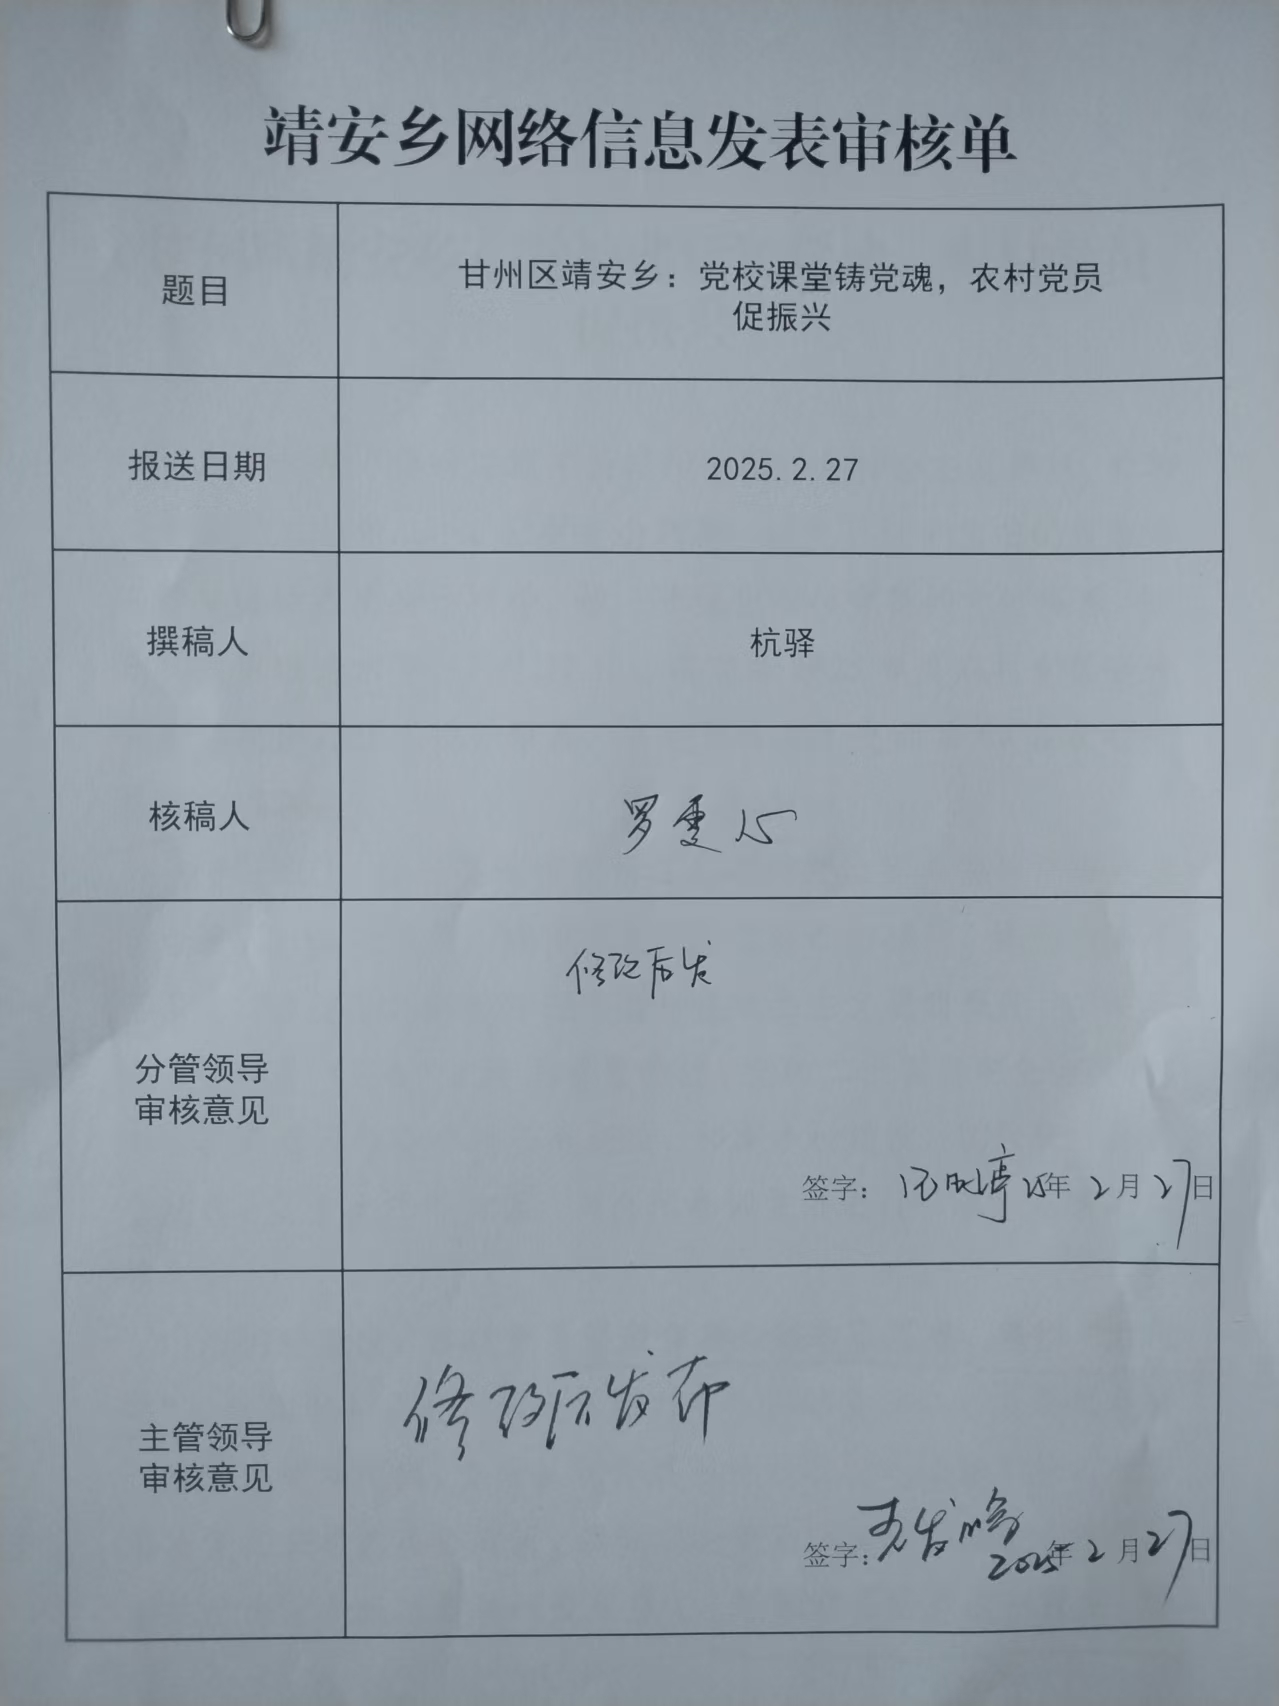 靖安乡网络信息发表审核单
题目
甘州区靖安乡：党校课堂铸党魂，农村党员
促振兴
报送日期
2025.2.27
撰稿人
杭驿
核稿人
罗雯心
分管领导
审核意见
修改后发
签字： 25年2月27日
主管领导
审核意见
修改后发布
签字： 2025年2月27日